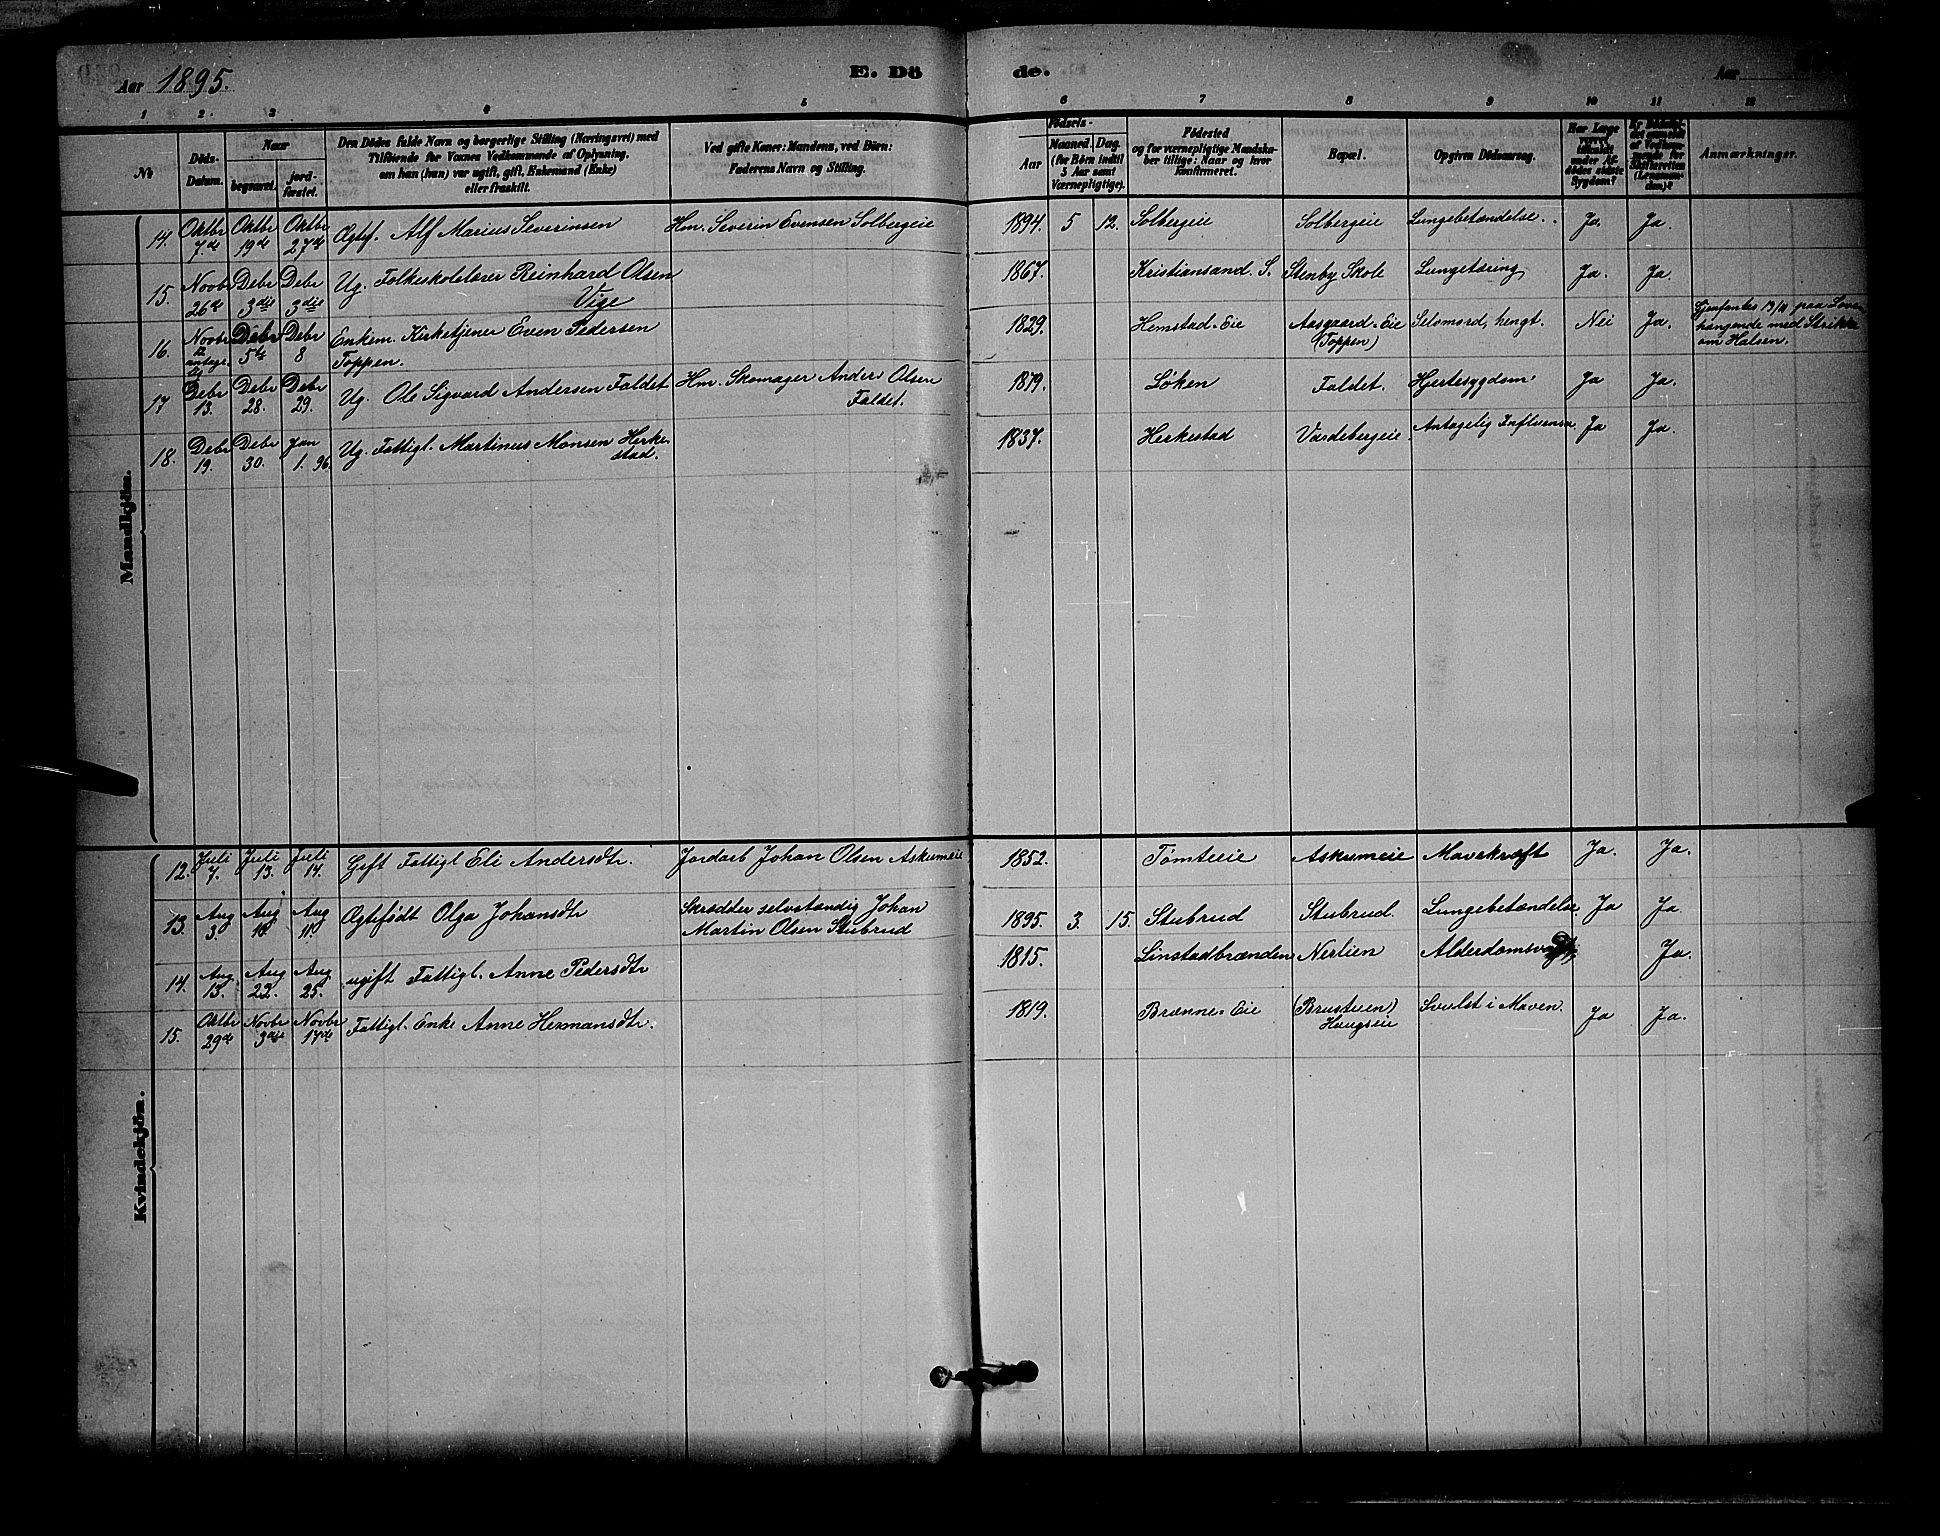 Aar 1895. E. Dö de. Aar
1 2. 3 4 5 6 7 8 9 10 11 12
№ Döds-Datum. Naar begravet. jord-fæstet. Den Dödes fulde Navn og borgerlige Stilling (Næringsvei) med Tilföiende for Voxnes Vedkommende af Oplysning, om han (hun) var ugift, gift, Enkemand (Enke) eller fraskilt. Ved gifte Koner: Mandens, ved Börn: Faderens Navn og Stilling. Födsels- Aar Maaned Dag. (for Börn indtil 5 Aar samt Værnepligtige). Födested og for værnepligtige Mandskaber tillige: Naar og hvor konfirmeret. Bopæl. Opgiven Dödsaarsag. Har Læge under Afdödes sidste Sygdom? Anmærkninger.
Mandkjön.
14. Oktbr 7.de Oktbr 19de Oktbr 27de Ægtf. Alf Marius Severinsen Hm. Severin Evensen Solbergeie 1894. 5 12. Solbergeie Solbergeie Lungebetændelse. Ja. Ja.
15. Novbr 26de Debr 3die Debr 3die Ug. Folkeskolelærer Reinhard Olsen Vige 1867. Kristiansand. S. Stenby Skole Lungetæring Ja. Ja.
16. Novbr 12 antage- Debr 5te Debr 8 Enkem. Kirketjener Even Pedersen Toppen. 1829. Hemstad-Eie Aasgaard-Eie (Toppen) Selvmord, hengt. Nei Ja. Gjenfantes 19/11 paa hængende med Strikke om Halsen.
17 Debr 13. Debr 28. Debr 29. Ug. Ole Sigvard Andersen Faldet Hm. Skomager Anders Olsen Faldet. 1879. Löken Faldet. Hjertesygdom Ja Ja.
18. Debr 19. Debr 30. Jan 1. 96. Ug. Fattigl. Martinus Monsen Herkestad. 1837. Herkestad Vardebergeie. Antagelig Influensa Ja Ja.
Kvindekjön.
12. Juli 7. Juli 13. Juli 14. Gift Fattigl Eli Andersdtr. Jordarb Johan Olsen Askumeie 1852. Tømteeie Askumeie Mavekræft Ja. Ja.
13. Aug 3. Aug 10. Aug 11. Ægtefödt Olga Johansdtr Skrædder selvstændig Johan Martin Olsen Stubrud 1895. 3. 15. Stubrud Stubrud. Lungebetændelse Ja Ja.
14. Aug 13. Aug 22. Aug 25. ugift Fattigl. Anne Pedersdtr 1815. Linstadbrænden Nerlien Ja.
15. Oktbr 29de Novbr 3die Novbr 17de Fattigl. Enke Anne Hermansdtr. 1819. Brænne-Eie (Brustuen) Haugseie Svulst i Maven. Ja Ja.